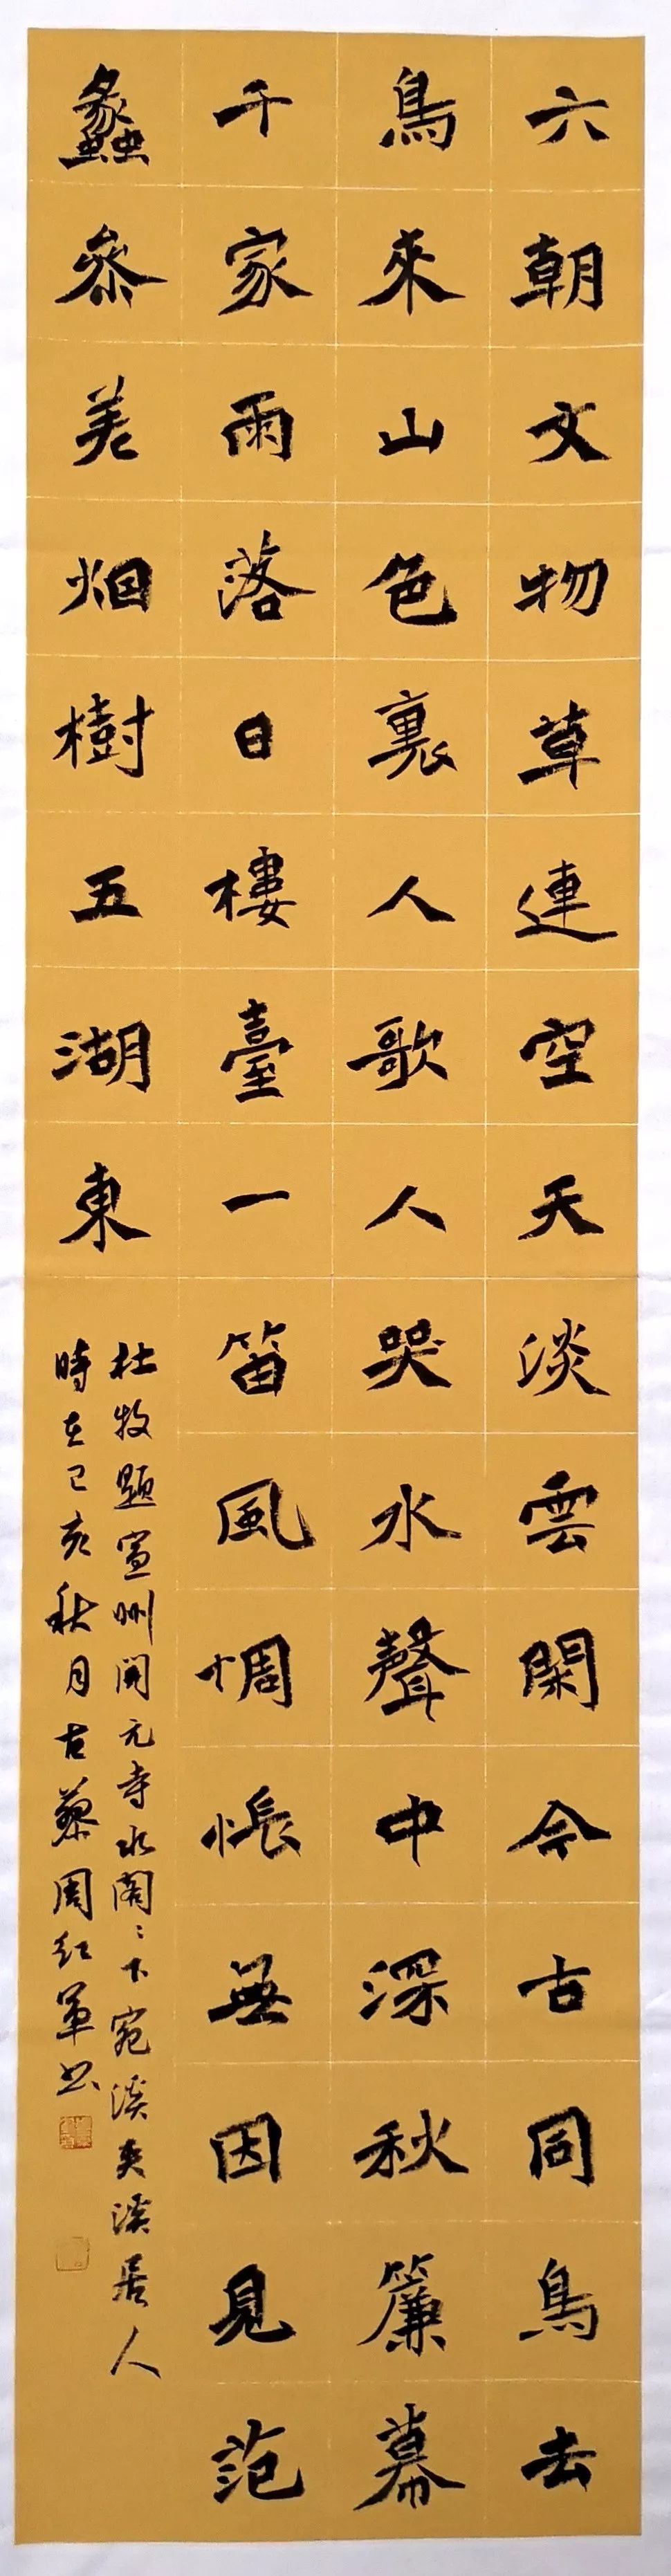 六朝文物草連空天淡雲閑今古同鳥去
鳥來山色裏人歌人哭水聲中深秋簾幕
千家雨落日樓臺一笛風惆悵無因見范
蠡參差烟樹五湖東
杜牧題宣州開元寺水閣〻下宛溪夾溪居人
時在己亥秋月古蔡周紅軍书